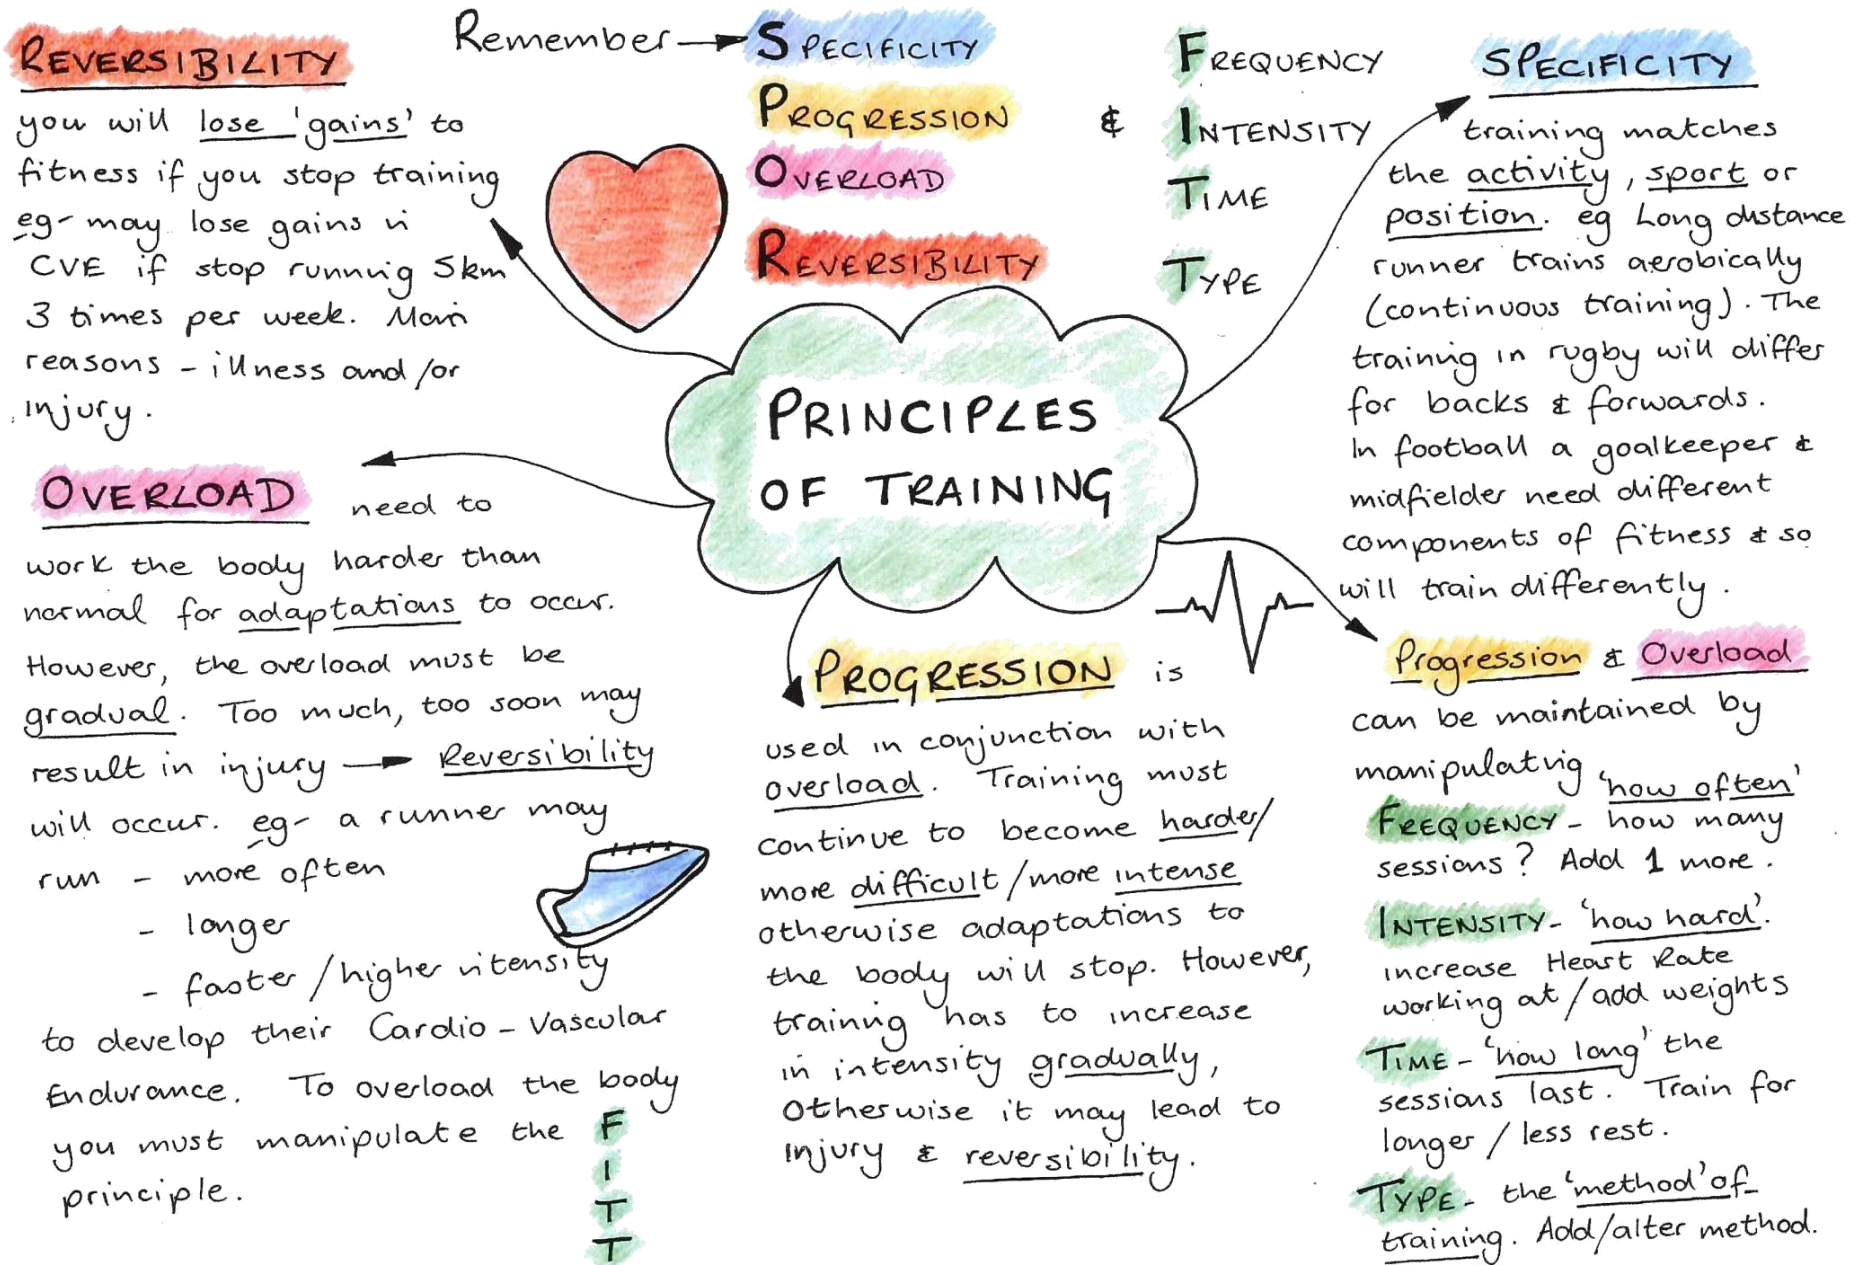 Remember → SPECIFICITY
PROGRESSION
OVERLOAD
REVERSIBILITY
&
FREQUENCY
INTENSITY
TIME
TYPE
PRINCIPLES
OF TRAINING
REVERSIBILITY
you will lose 'gains' to
fitness if you stop training
eg- may lose gains in
CVE if stop running 5km
3 times per week. Main
reasons - illness and/or
injury.
OVERLOAD need to
work the body harder than
normal for adaptations to occur.
However, the overload must be
gradual. Too much, too soon may
result in injury → Reversibility
will occur. eg- a runner may
run - more often
- longer
- faster/higher intensity
to develop their Cardio-Vascular
Endurance. To overload the body
you must manipulate the F
I
principle.
T
T
PROGRESSION is
used in conjunction with
overload. Training must
continue to become harder/
more difficult/more intense
otherwise adaptations to
the body will stop. However,
training has to increase
in intensity gradually,
otherwise it may lead to
injury & reversibility.
SPECIFICITY
training matches
the activity, sport or
position. eg Long distance
runner trains aerobically
(continuous training). The
training in rugby will differ
for backs & forwards.
In football a goalkeeper &
midfielder need different
components of fitness & so
will train differently.
Progression & Overload
can be maintained by
manipulating
'how often'
FREQUENCY - how many
sessions? Add 1 more.
INTENSITY - 'how hard'.
increase Heart Rate
working at/add weights
TIME - 'how long' the
sessions last. Train for
longer/less rest.
TYPE - the 'method' of
training. Add/alter method.